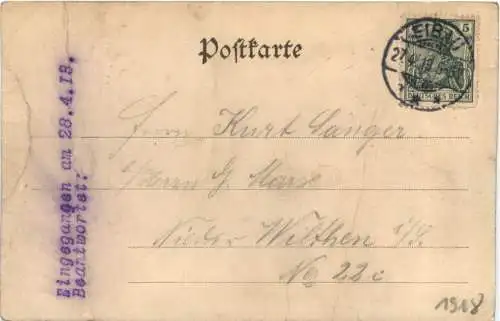 Postkarte
EIBAU
27.4.13
5
DEUTSCHES REICH
Eingegangen am 28.4.13.
Beantwortet:
Herrn Kurt Sänger
Nieder Wilthen i/S.
No 22 c
1918